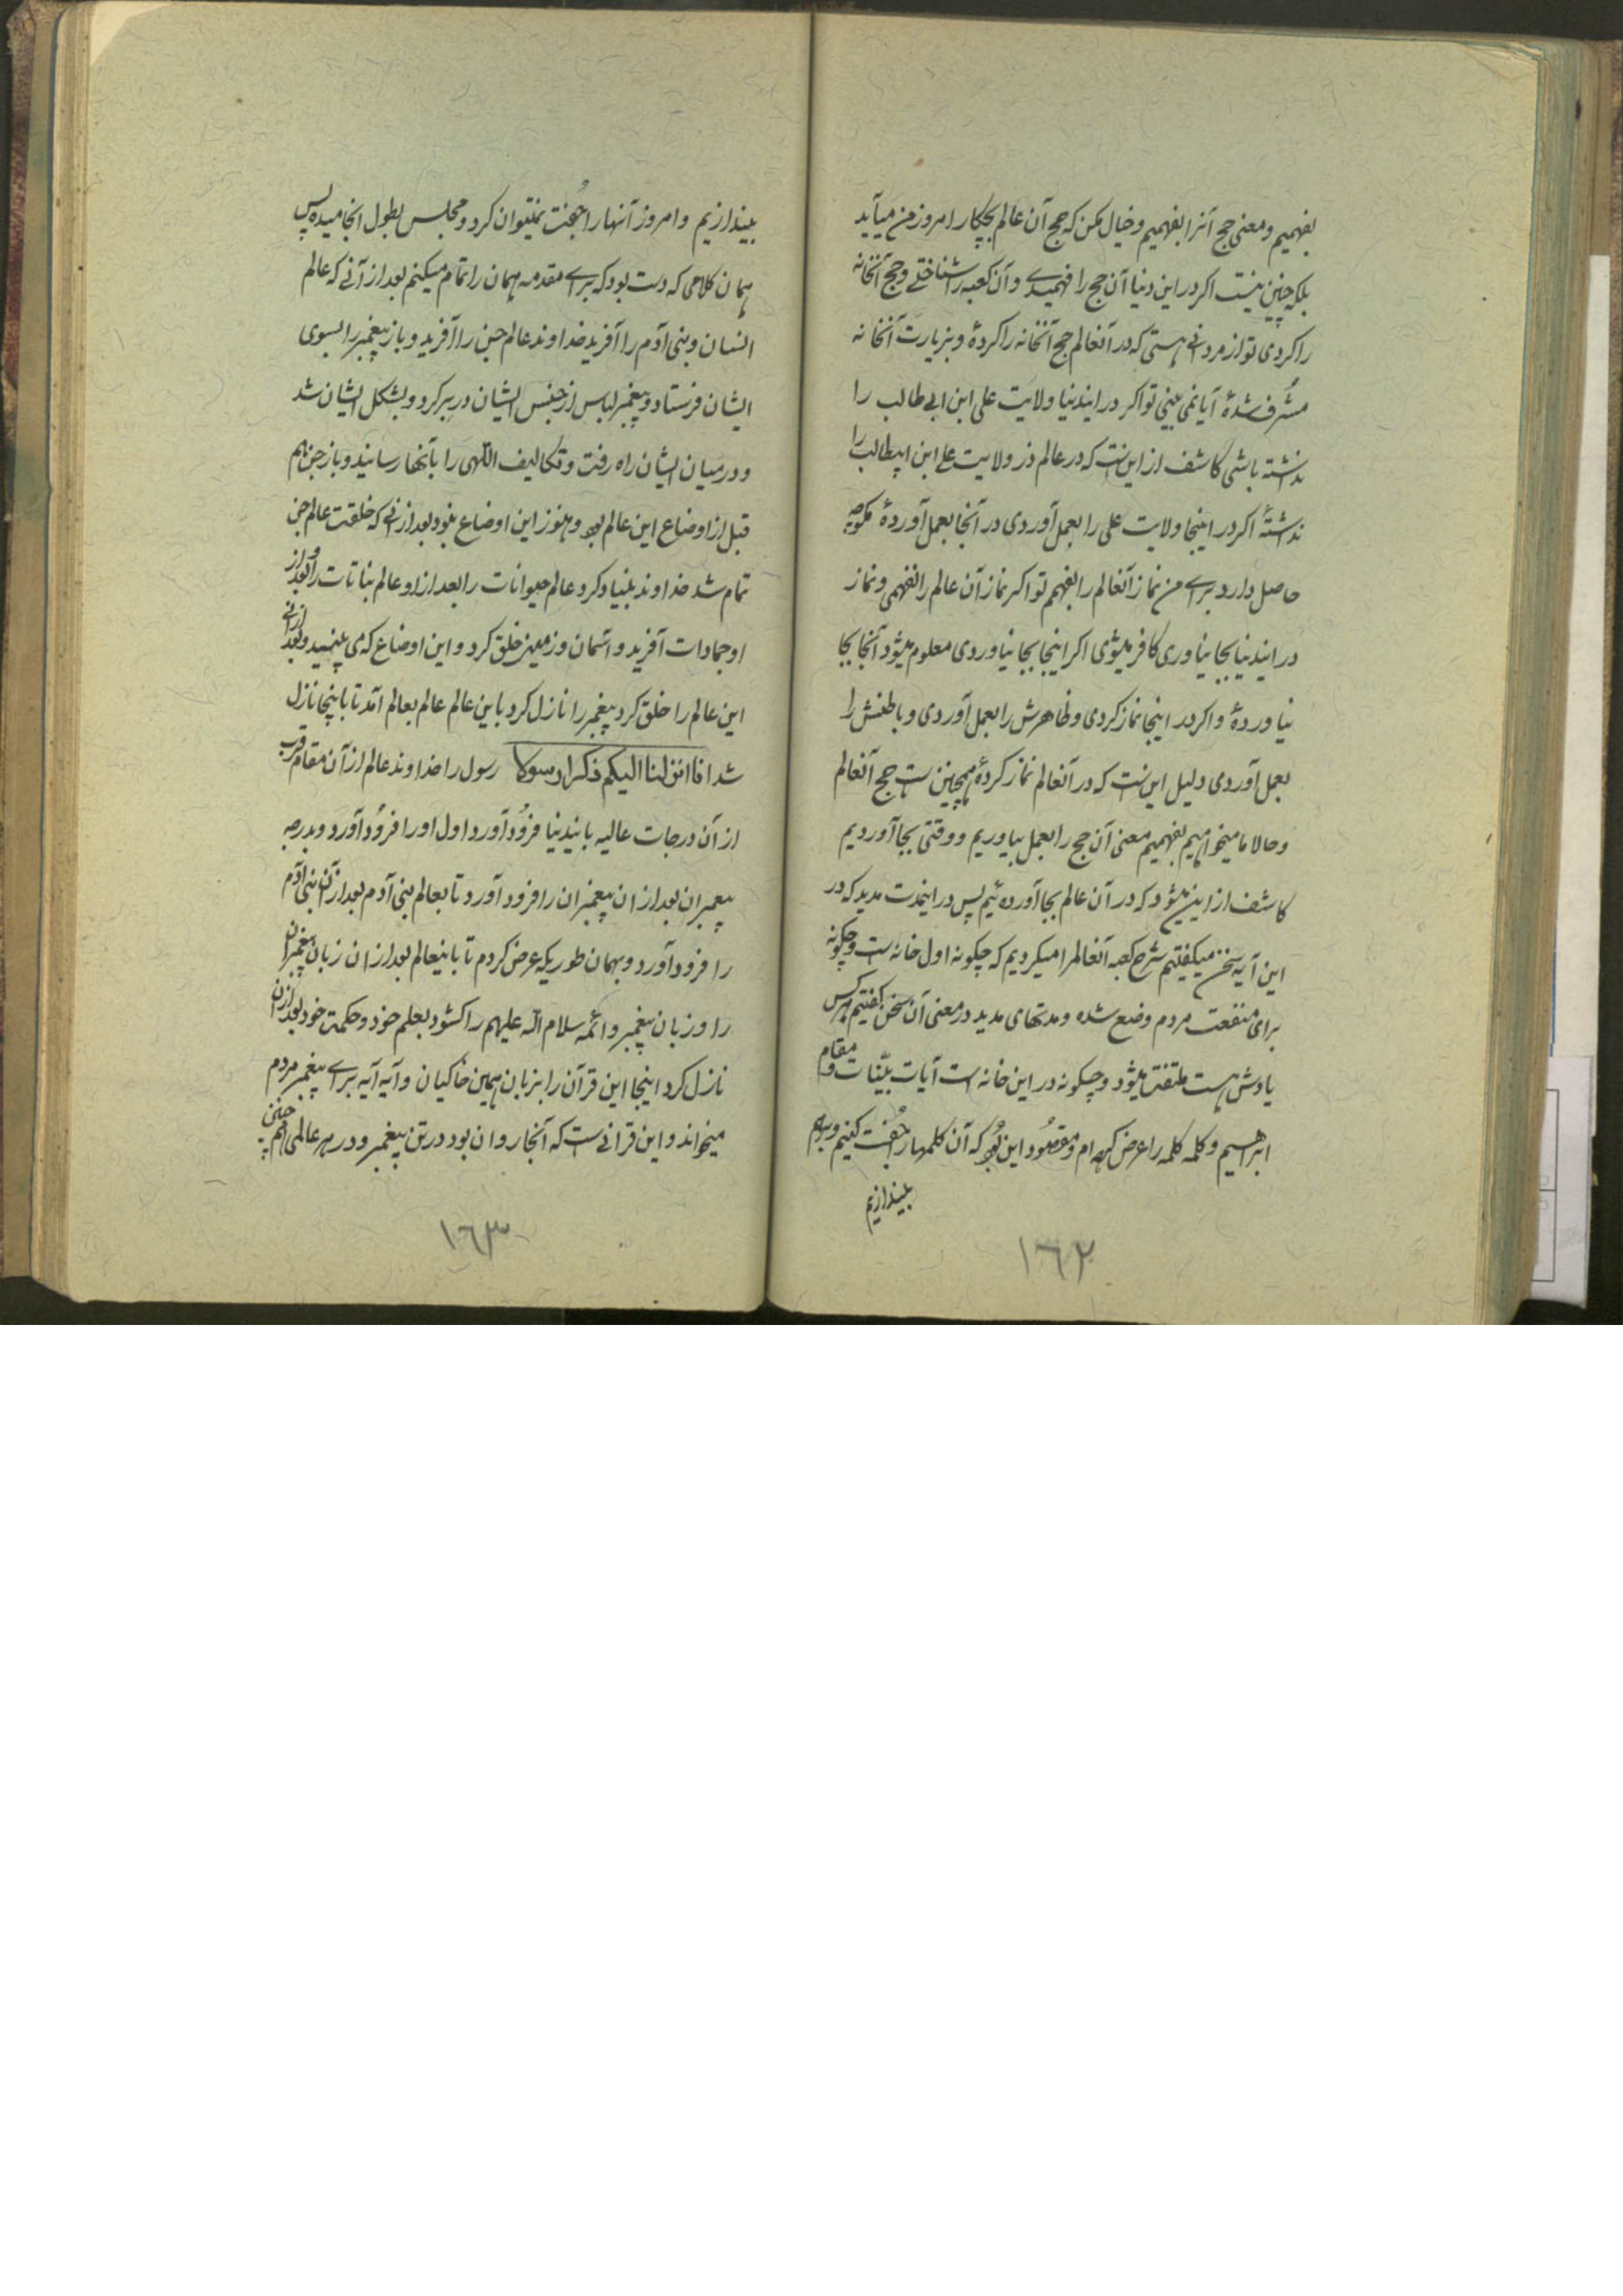 بفهمیم و معنی حج آنرا بفهمیم و خیال مکن که حج آن عالم بچکار امروز من میآید
بلکه چنین نیست اکر در این دنیا آن حج را فهمیدے و آن کعبه را شناختے و حج آنخانه
را کردی تو از مردانے هستی که در آنعالم حج آنخانه را کردهٔ و بزیارت آنخانه
مشرف شدهٔ آیا نمی بینی تو اکر در ایندنیا ولایت علی ابن ابی طالب را
نداشته باشی کاشف از این است که در عالم ذر ولایت علی ابن ابیطالب را
نداشتهٔ اکر در اینجا ولایت علی را بعمل آوردی در آنجا بعمل آوردهٔ مکو چه
حاصل دارد براے من نماز آنعالم را بفهمم تو اکر نماز آن عالم را نفهمی و نماز
در ایندنیا بجا نیاوری کافر میشوی اکر اینجا بجا نیاوردی معلوم میشود آنجا بجا
نیاوردهٔ و اکر در اینجا نماز کردی و ظاهرش را بعمل آوردی و باطنش را
بعمل آوردی دلیل این است که در آنعالم نماز کردهٔ همچنین است حج آنعالم
و حالا ما میخواهیم بفهمیم معنی آن حج را بعمل بیاوریم و وقتی بجا آوردیم
کاشف از این میشود که در آن عالم بجا آورده‌ئیم پس در اینمدت مدید که در
این آیه سخن میکفتیم شرح کعبه آنعالم را میکردیم که چکونه اول خانه است و چکونه
برای منفعت مردم وضع شده و مدتهای مدید در معنی آن سخن کفتیم هر کس
یادش هست ملتفت میشود و چکونه در این خانه است آیات بیّنات و مقام
ابراهیم و کلمه کلمه را عرض کرده‌ام و مقصود این بود که آن کلمها را جُفت کنیم و بر هم
بیندازیم
۱۶۲
بیندازیم و امروز آنها را جُفت نمیتوان کرد و مجلس بطول انجامیده پس
همان کلامی که دست بود که براے مقدمه همان را تمام میکنم بعد از آنے که عالم
انسان و بنی آدم را آفرید خداوند عالم جن را آفرید و باز پیغمبر را بسوی
ایشان فرستاد و پیغمبر لباس از جنس ایشان در بر کرد و بشکل ایشان شد
و در میان ایشان راه رفت و تکالیف الٓلهی را بآنها رسانید و باز جن هم
قبل از اوضاع این عالم بود و هنوز این اوضاع نبود بعد از انے که خلقت عالم جن
تمام شد خداوند بنیاد کرد عالم حیوانات را بعد از او عالم نباتات را و بعد از
او جمادات آفرید و آسمان و زمین خلق کرد و این اوضاع که می بینید و بعد از انے
این عالم را خلق کرد پیغمبر را نازل کرد باین عالم عالم بعالم آمد تا باینجا نازل
شد انا انزلنا الیکم ذکرا رسولا رسول را خداوند عالم از آن مقام قرب
از آن درجات عالیه بایندنیا فرُود آورد اول او را فرُود آورد و بدرجه
پیغمبران بعد از ان پیغمبران را فرود آورد تا بعالم بنی آدم بعد از آن بنی آدم
را فرود آورد و بهمان طوریکه عرض کردم تا باینعالم بعد از ان زبان پیغمبران
را و زبان پیغمبر و ائمه سلام الله علیهم را کشود بعلم خود و حکمت خود بعد از ان
نازل کرد اینجا این قرآن را بزبان همین خاکیان و آیه آیه براے پیغمبر مردم
میخواند و این قرانے است که آنجا روان بود در تن پیغمبر و در هر عالمی هم چنین
۱۶۳